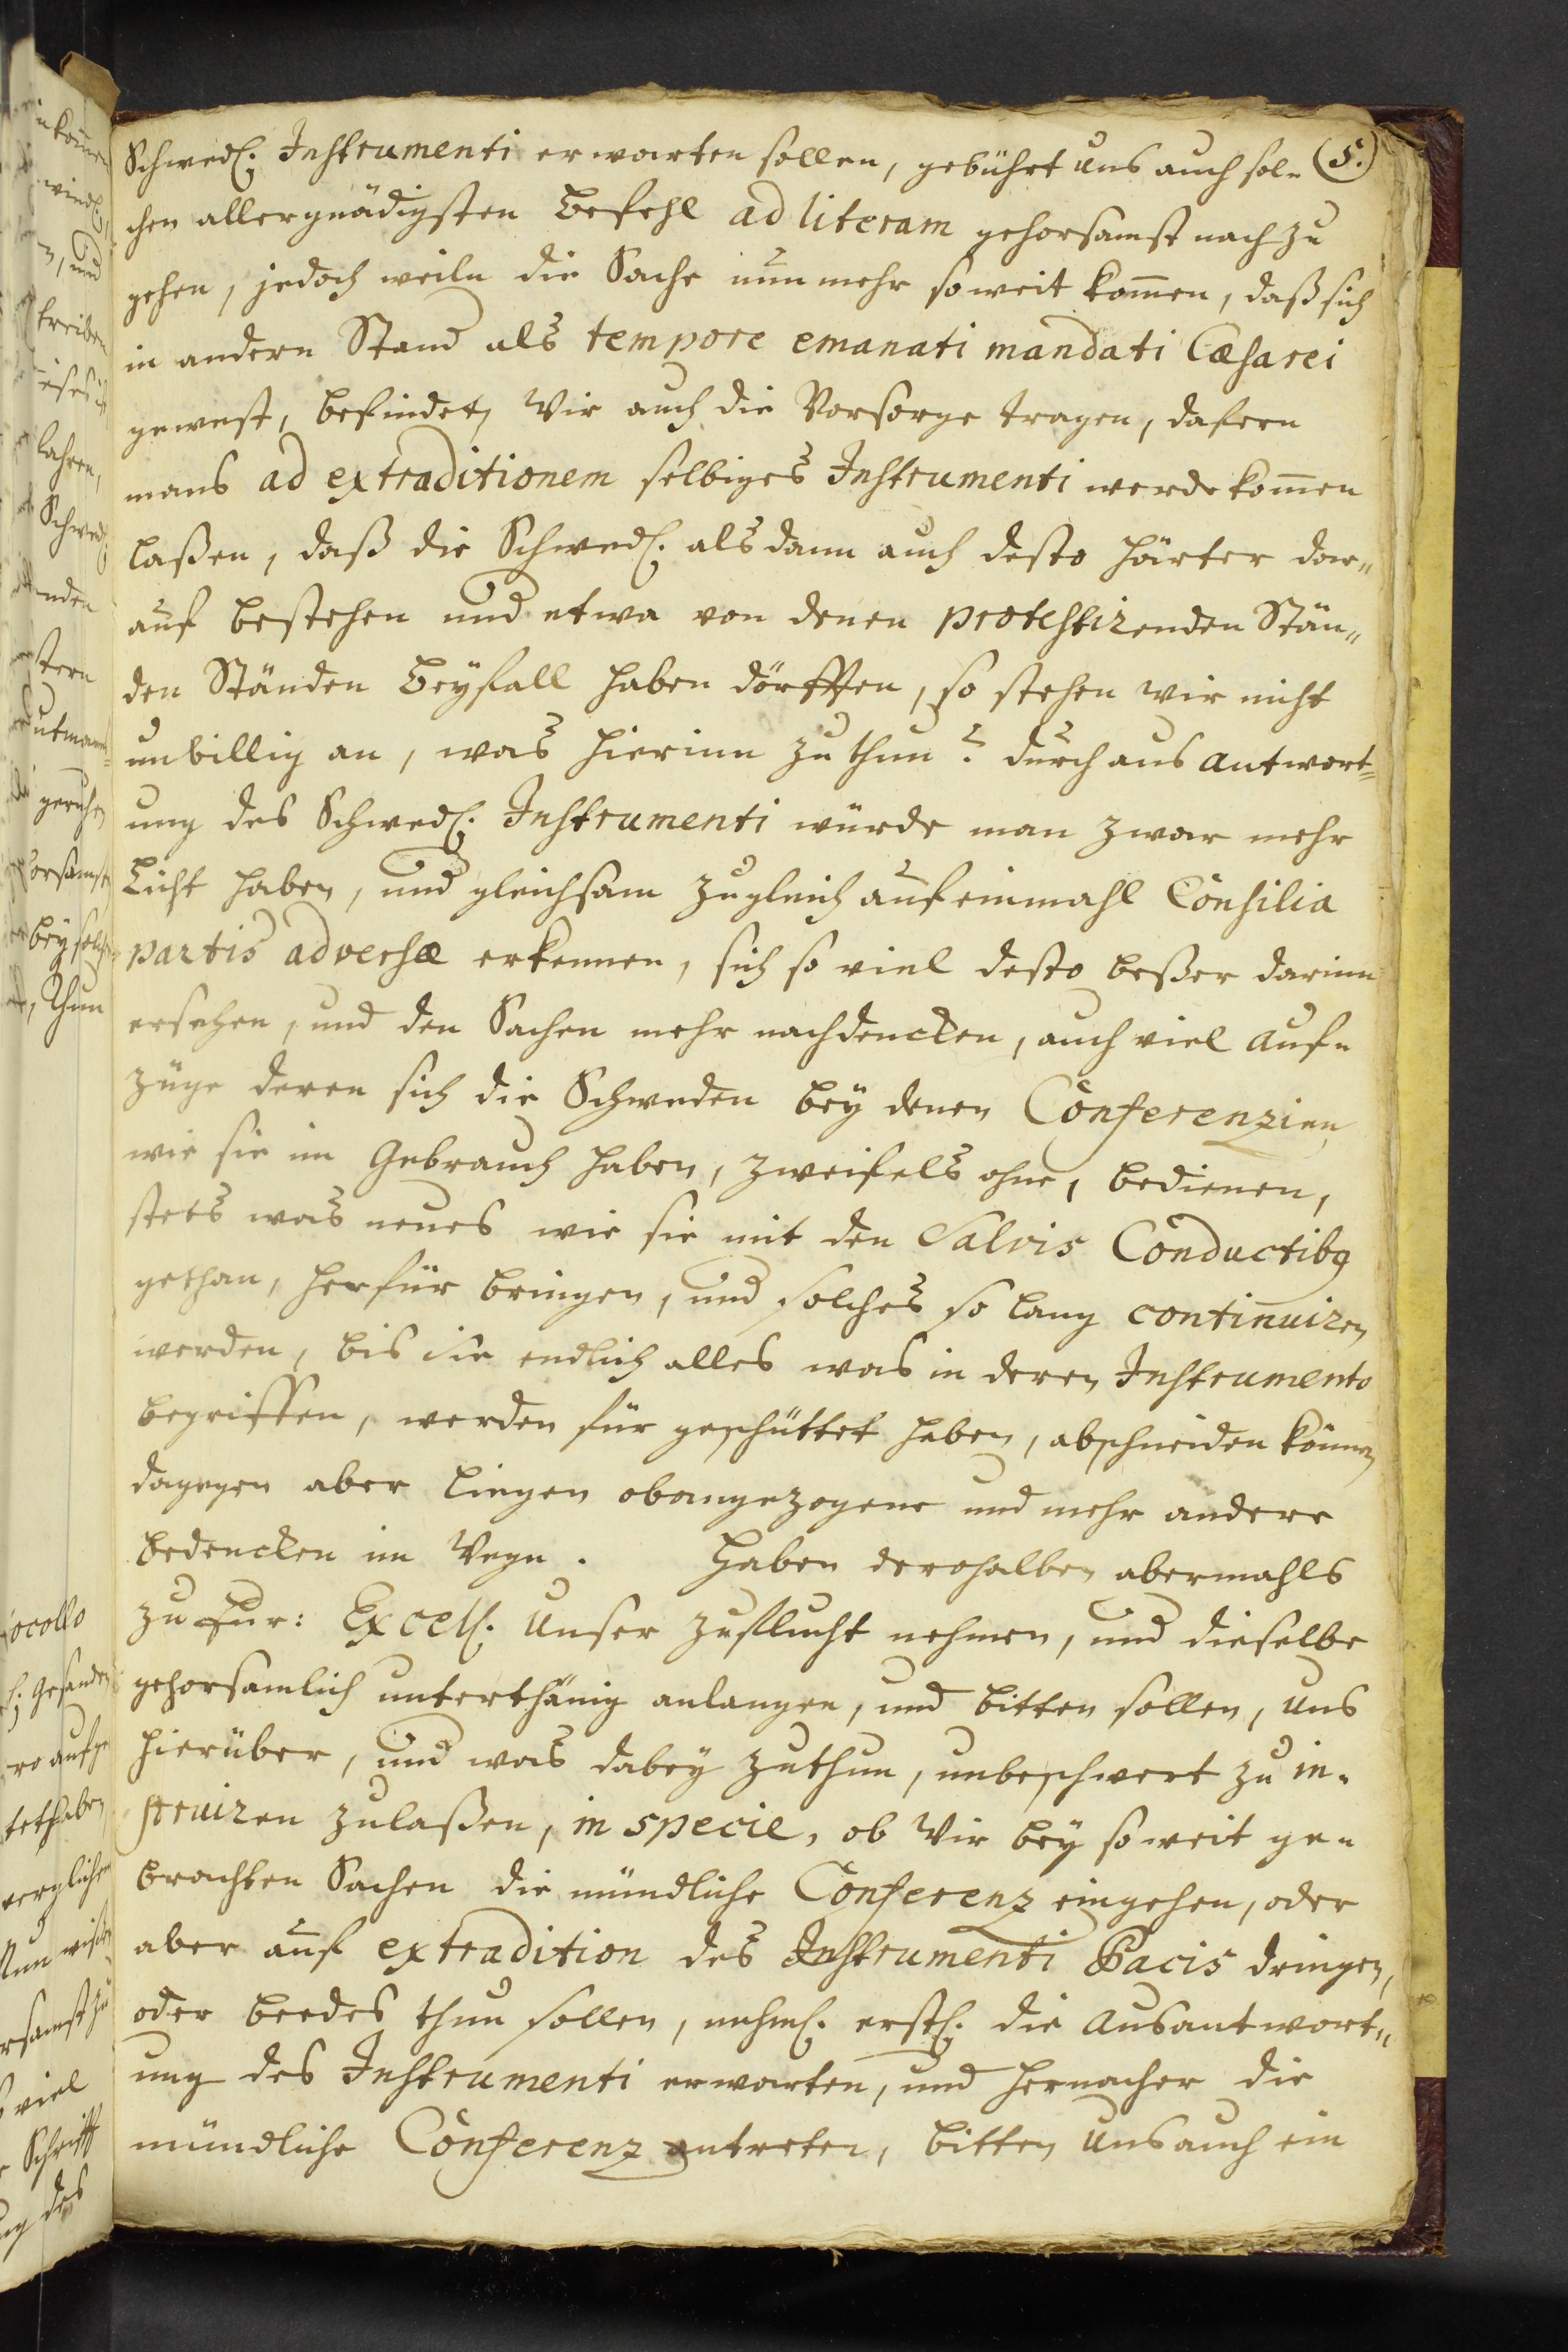 Schwed. Instrumenti erwarten sollen, gebührt uns auch sol= (5.)
chen allergnädigsten Befehl ad literam gehorsamst nach zu
gehen, jedoch weiln die Sache nun mehr so weit kom̃en, daß sich
in andern Stand als tempore emanati mandati Cæsarei
gewest, befindet, Wir auch die Vorsorge tragen, dafern
mans ad extraditionem selbiges Instrumenti werde kom̃en
laßen, daß die Schwed. alsdann auch desto härter dar„
auf bestehen und etwa von denen protestirenden Stän„
den Ständen Beyfall haben dörfften, so stehen wir nicht
unbillig an, was hierinn zu thun? durch aus antwort=
ung des Schwed. Instrumenti würde man zwar mehr
Licht haben, und gleichsam zugleich auf einmahl Consilia
partis adversæ erkennen, sich so viel desto beßer darinn
ersehen, und den Sachen mehr nachdencken, auch viel Auf=
züge deren sich die Schweden bey denen Conferenzien,
wie sie im Gebrauch haben, zweifels ohne, bedienen,
stets was neues wie sie mit den Salvis Conductibq
gethan, herfür bringen, und solches so lang continuiren
werden, bis sie endlich alles was in deren Instrumento
begriffen, werden für geschüttet haben, abschneiden können
dagegen aber liegen obangezogene und mehr andere
bedencken im Wege. Haben derohalben abermahls
zu Eur: Excell. unser zuflucht nehmen, und dieselbe
gehorsamlich unterthänig anlangen, und bitten sollen, uns
hierüber, und was dabey zuthun, unbeschwert zu in=
struiren zulaßen, in specie, ob Wir bey so weit ge=
brachten Sachen die mündliche Conferenz eingehen, oder
aber auf extradition des Instrumenti Pacis dringen,
oder beedes thun sollen, nehml. erstl. die Ausantwort„
ung des Instrumenti erwarten, und hernacher die
mündliche Conferenz antreten, bitten uns auch ein